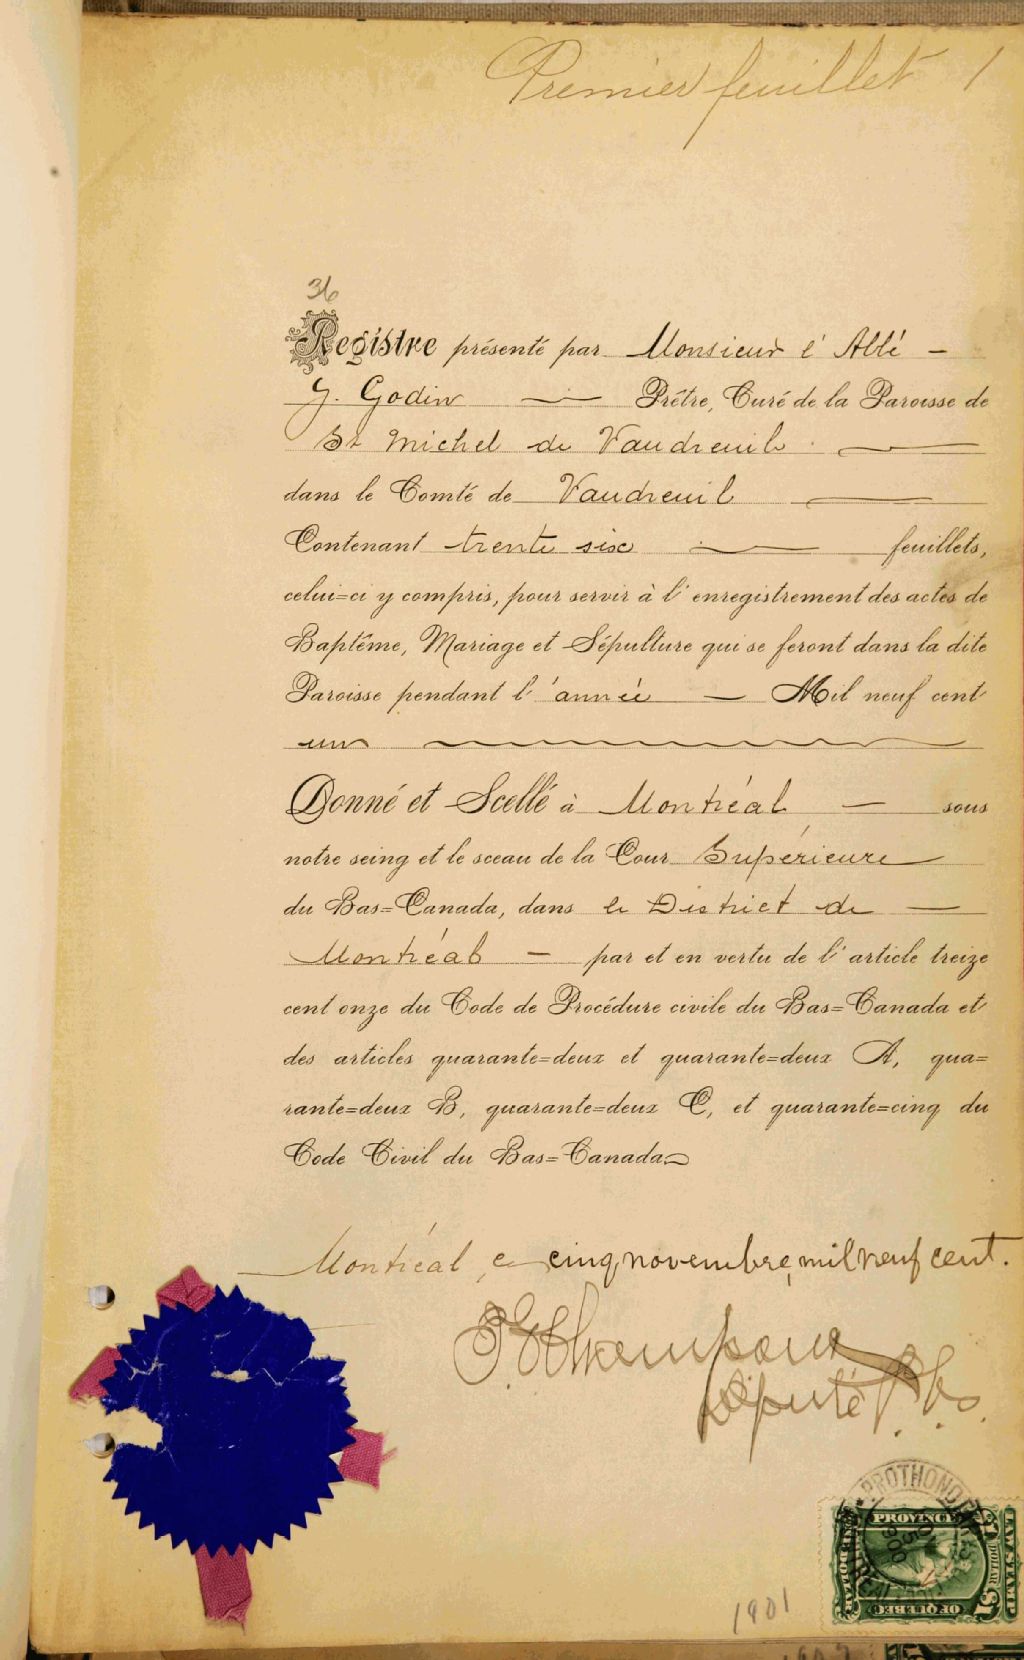 Premier feuillet 1
36
Registre présenté par Monsieur l'Abbé –
J. Godin — Prêtre, Curé de la Paroisse de
St Michel de Vaudreuil —
dans le Comté de Vaudreuil —
Contenant trente six — feuillets,
celui=ci y compris, pour servir à l'enregistrement des actes de
Baptême, Mariage et Sépulture qui se feront dans la dite
Paroisse pendant l'année — Mil neuf cent
un
Donné et Scellé à Montréal — sous
notre seing et le sceau de la Cour Supérieure
du Bas=Canada, dans le District de —
Montréal – par et en vertu de l'article treize
cent onze du Code de Procédure civile du Bas=Canada et
des articles quarante=deux et quarante=deux A, qua=
rante=deux B, quarante=deux C, et quarante=cinq du
Code Civil du Bas=Canada.
Montréal, ce cinq novembre, mil neuf cent.
Député P. C. S.
PROTHONOT
PROVINCE
QUEBEC
LAW STAMP
DOLLAR
$1
1901